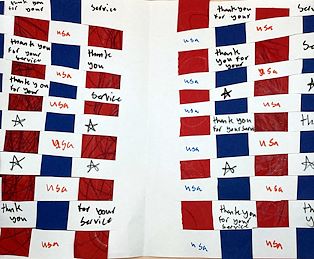 thank you
for your
service
thank you
for your
usa
usa
Serv
thank you
for your
service
thank
you
usa
thank you
for your
usa
usa
thank you
for your
service
usa
usa
usa
thank you
for your service
usa
usa
usa
usa
usa
thank
you
for your
service
thank you
for your
service
usa
usa
usa